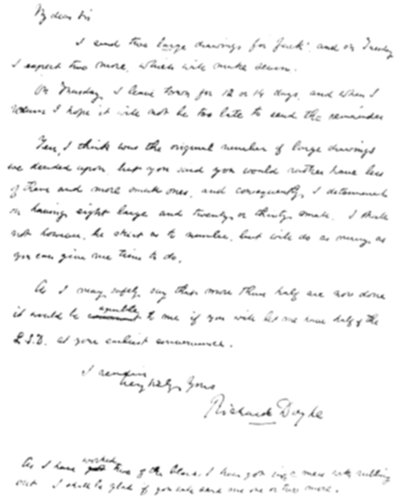 My dear Sir
I send two large drawings for "Jack" and on Tuesday
I expect two more, which will make seven.
On Thursday I leave town for 12 or 14 days, and when I
return I hope it will not be too late to send the remainder
Ten, I think was the original number of large drawings
we decided upon but you said you would rather have less
of them and more small ones, and consequently I determined
on having eight large and twenty or thirty small. I shall
not however, be strict as to number, but will do as many as
you can give me time to do.
As I may safely say that more than half are now done
it would be agreeable to me if you will let me have half of the
£.S.D. at your earliest convenience.
I remain
Very truly Yours
Richard Doyle
As I have worked two of the blocks I have got
out I shall be glad if you will send me one or two more.